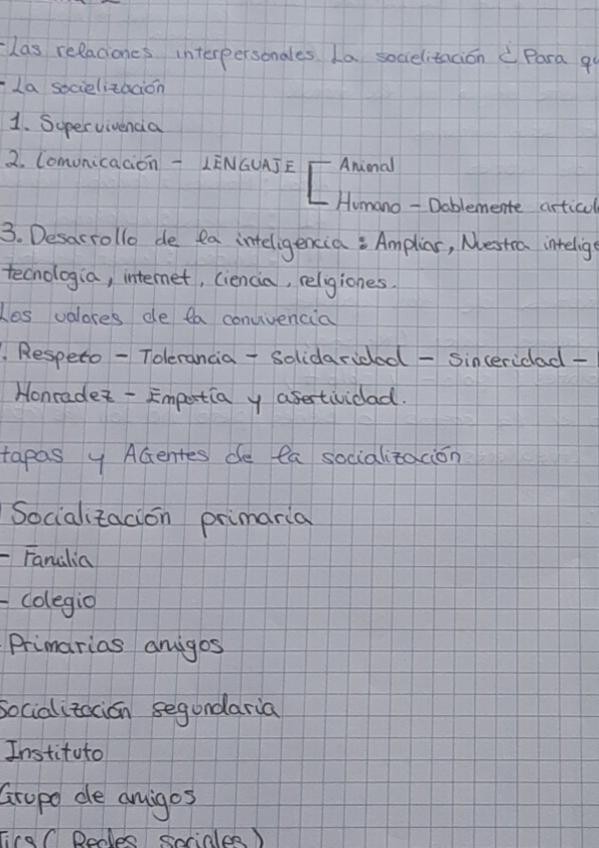 - Las relaciones interpersonales La socielización ¿ Para qu
- La socielización
1. Supervivencia
2. Comunicación - LENGUAJE Animal
Humano - Doblemente articul
3. Desarrollo de la inteligencia : Ampliar, Nuestra intelige
tecnología, internet, Ciencia, religiones.
Los valores de la convivencia
. Respeto - Tolerancia - Solidaridad - Sinceridad -
Honradez - Empatía y asertividad.
tapas y AGentes de la socialización
Socialización primaria
- Familia
- colegio
Primarias amigos
Socialización segundaria
Instituto
Grupo de amigos
Tics ( Redes sociales )